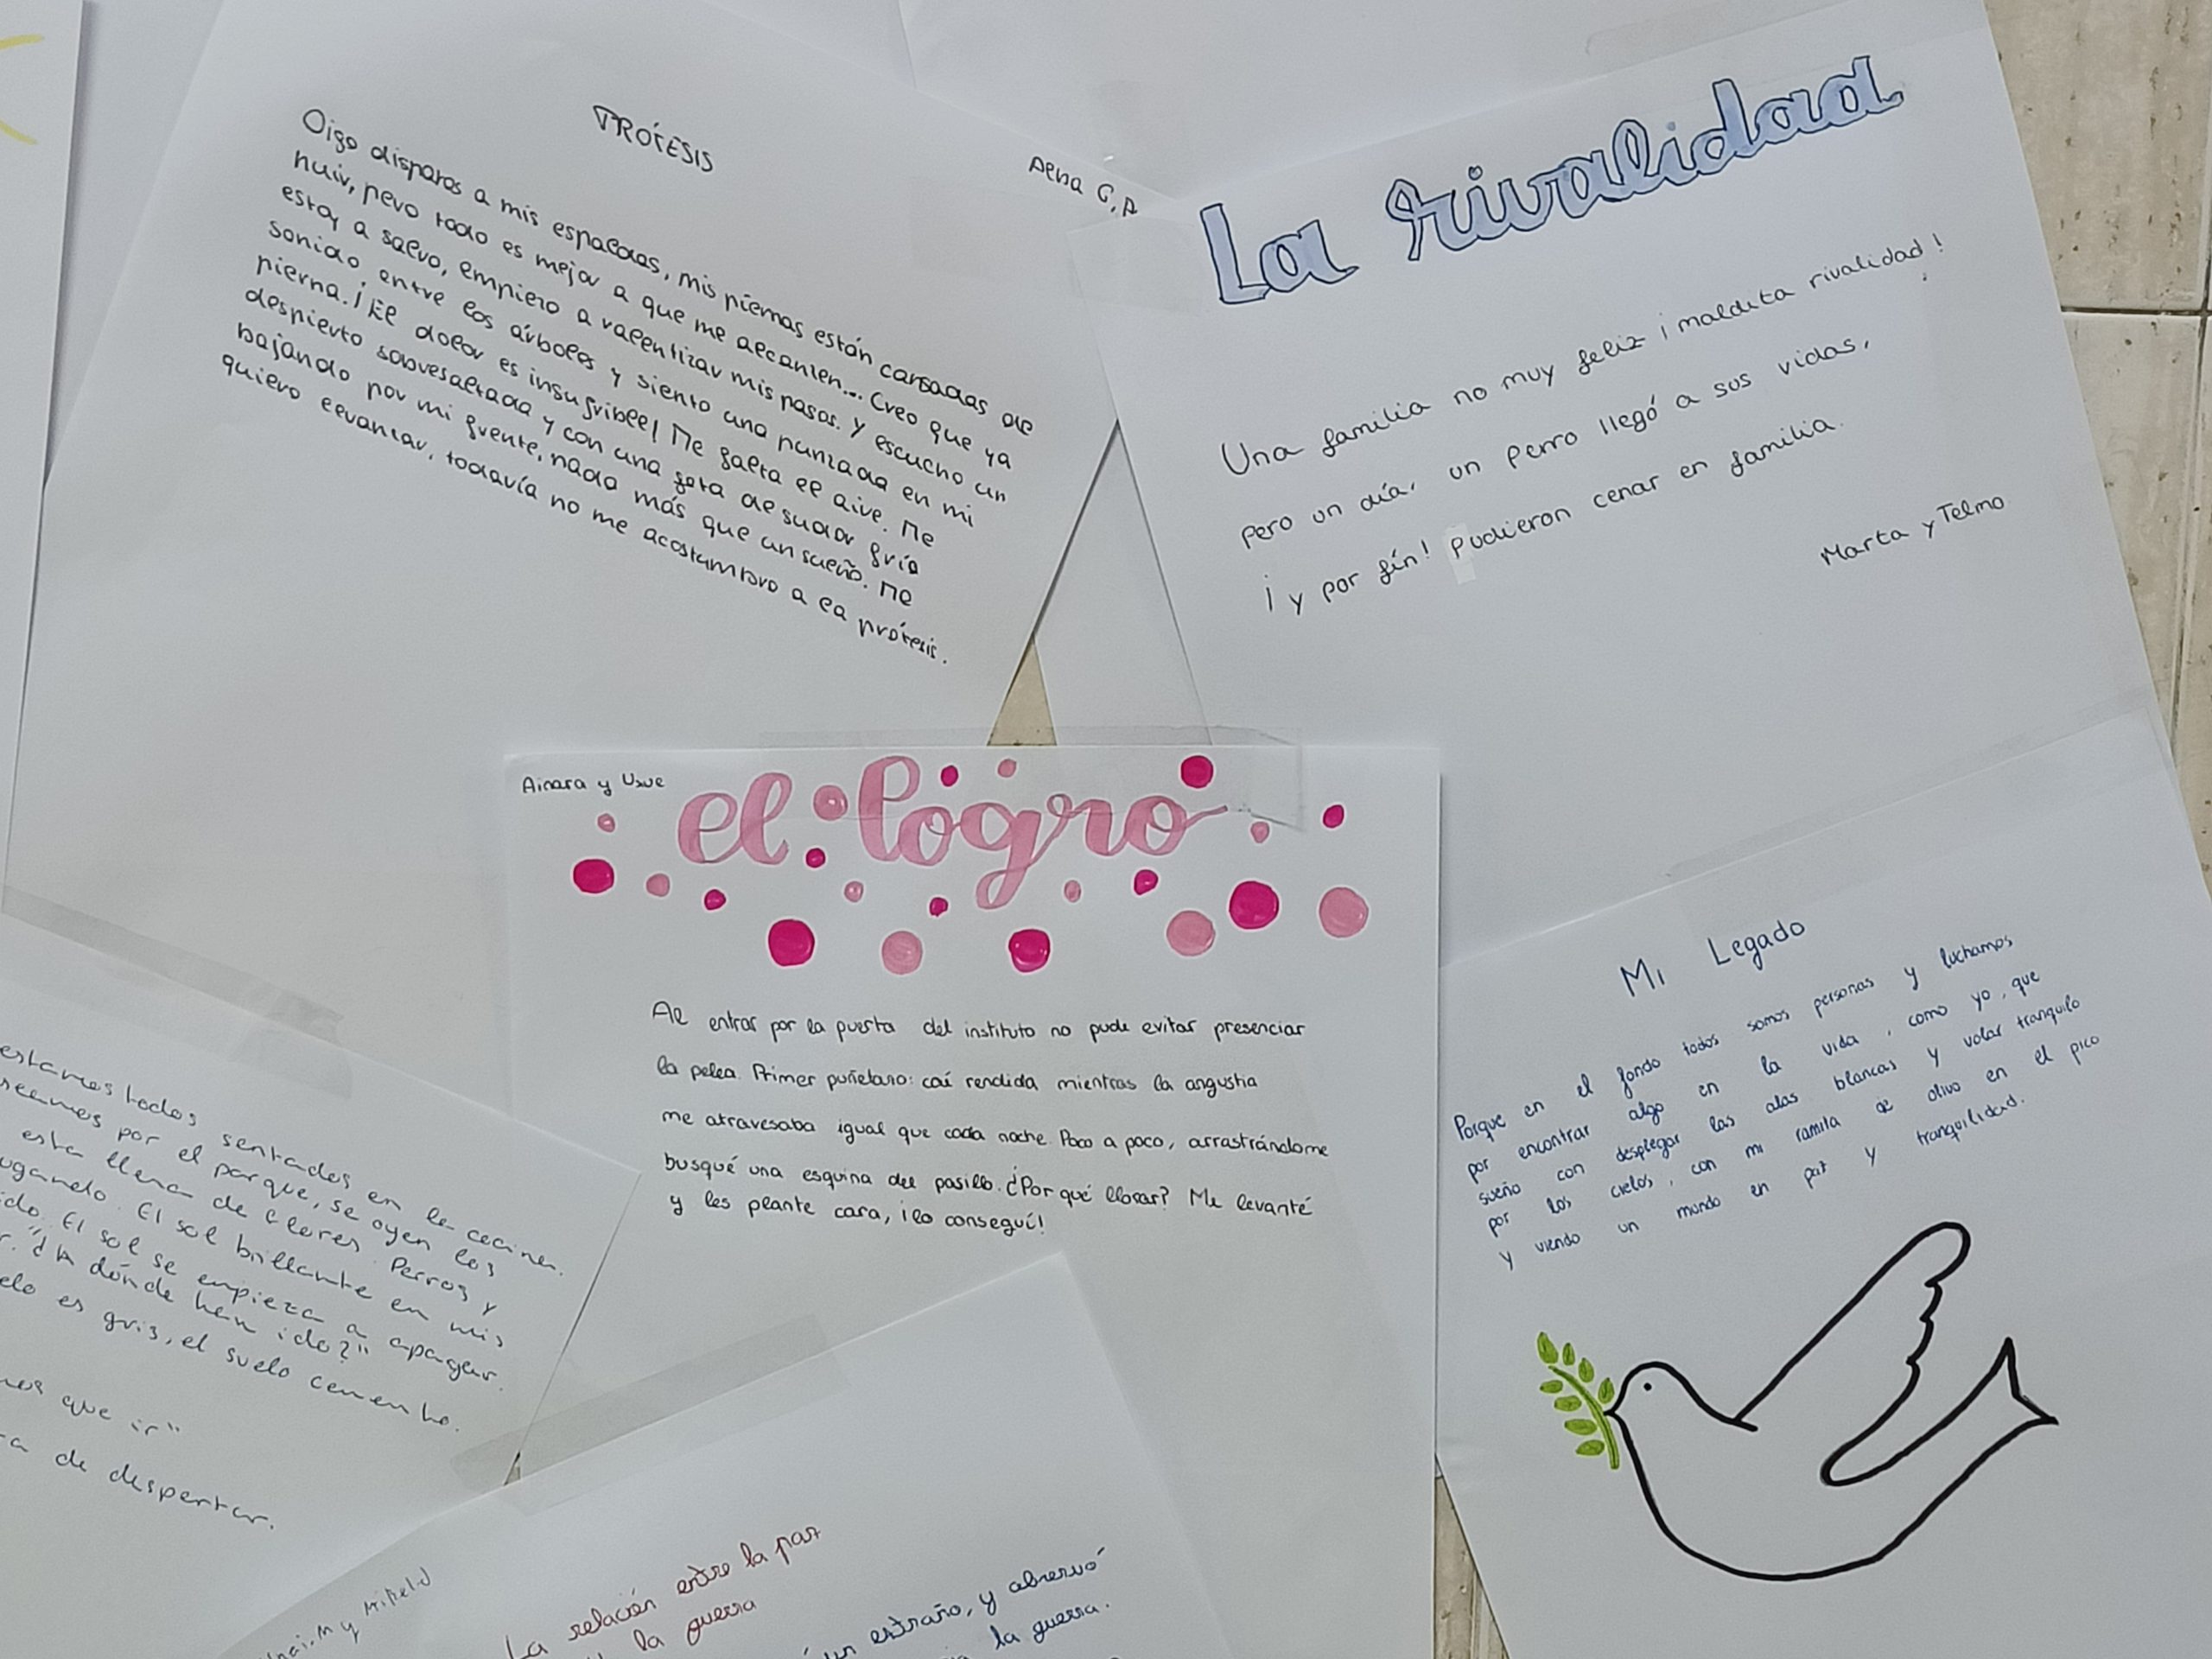 PRÓTESIS
Alba G.A
Oigo disparos a mis espaldas, mis piernas están cansadas de
huir, pero todo es mejor a que me alcancen... Creo que ya
estoy a salvo, empiezo a ralentizar mis pasos. Y escucho un
sonido entre los árboles y siento una punzada en mi
pierna. ¡El dolor es insufrible! Me falta el aire. Me
despierto sobresaltada y con una gota de sudor fría
bajando por mi frente, nada más que un sueño. Me
quiero levantar, todavía no me acostumbro a la prótesis.
La rivalidad
Una familia no muy feliz ¡maldita rivalidad!
pero un día, un perro llegó a sus vidas,
¡y por fín! pudieron cenar en familia.
Marta y Telmo
Ainara y Uxue
el logro
Al entrar por la puerta del instituto no pude evitar presenciar
la pelea. Primer puñetazo: caí rendida mientras la angustia
me atravesaba igual que cada noche. Poco a poco, arrastrándome
busqué una esquina del pasillo. ¿Por qué llorar? Me levanté
y les plante cara, ¡lo conseguí!
Mi Legado
Porque en el fondo todos somos personas y luchamos
por encontrar algo en la vida, como yo, que
sueño con desplegar las alas blancas y volar tranquilo
por los cielos, con mi ramita de olivo en el pico
y viendo un mundo en paz y tranquilidad.
estamos todos sentados en la cocina.
por el parque, se oyen los
esta llena de flores. Perros y
jugando. El sol brillante en mis
El sol se empieza a apagar.
"¿A dónde han ido?"
es gris, el suelo cemento.
que ir"
de despertar.
La relación entre la paz
y la guerra
un extraño, y
la guerra.